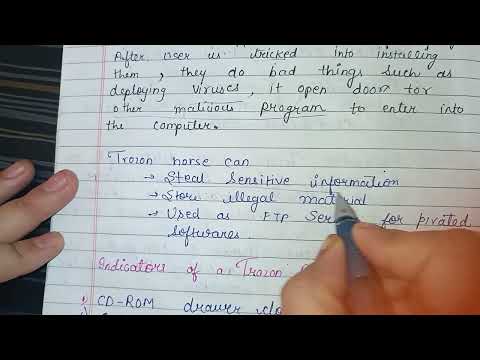 After user is tricked into installing
them, they do bad things such as
deploying viruses, it open door for
other malicious program to enter into
the computer.
Trozon horse can
→ Steal sensitive information
→ Store illegal material
→ Used as FTP Ser for pirated
softwares
Indicators of a Trozon
1) CD-ROM drawer